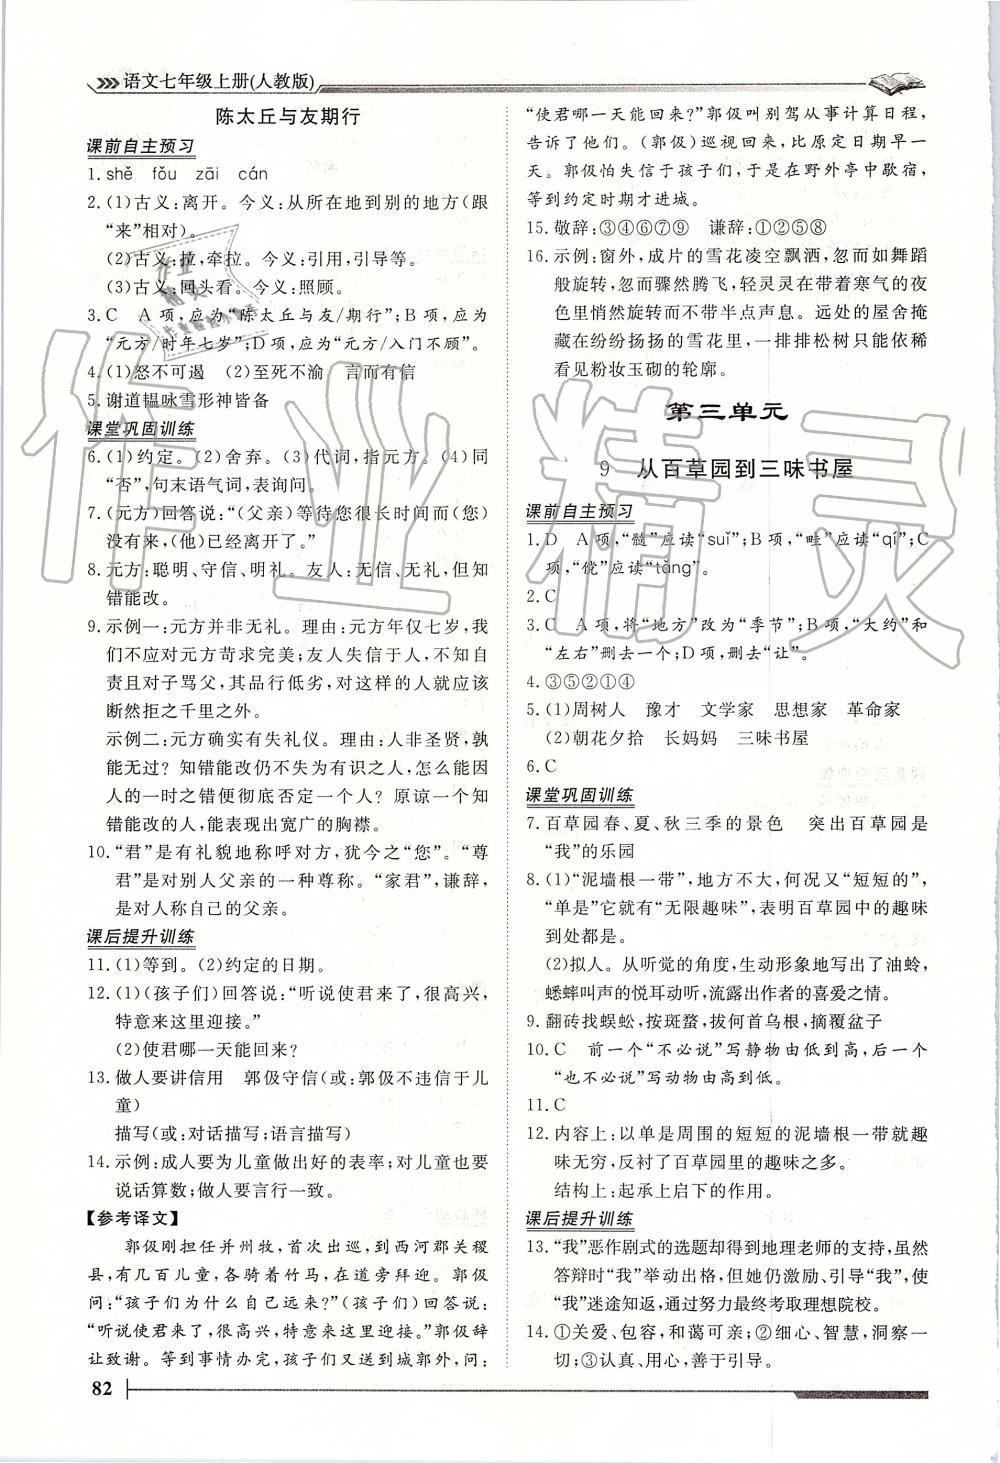 语文七年级上册(人教版)
陈太丘与友期行
课前自主预习
1. shě　fǒu　zāi　cán
2. (1)古义:离开。今义:从所在地到别的地方(跟
“来”相对)。
(2)古义:拉,牵拉。今义:引用,引导等。
(3)古义:回头看。今义:照顾。
3. C　A 项,应为“陈太丘与友/期行”;B 项,应为
“元方/时年七岁”;D 项,应为“元方/入门不顾”。
4. (1)怒不可遏　(2)至死不渝　言而有信
5. 谢道韫咏雪形神皆备
课堂巩固训练
6. (1)约定。(2)舍弃。(3)代词,指元方。(4)同
“否”,句末语气词,表询问。
7. (元方)回答说:“(父亲)等待您很长时间而(您)
没有来,(他)已经离开了。”
8. 元方:聪明、守信、明礼。友人:无信、无礼,但知
错能改。
9. 示例一:元方并非无礼。理由:元方年仅七岁,我
们不应对元方苛求完美;友人失信于人,不知自
责且对子骂父,其品行低劣,对这样的人就应该
断然拒之千里之外。
示例二:元方确实有失礼仪。理由:人非圣贤,孰
能无过?知错能改仍不失为有识之人,怎么能因
人的一时之错便彻底否定一个人?原谅一个知
错能改的人,能表现出宽广的胸襟。
10. “君”是有礼貌地称呼对方,犹今之“您”。“尊
君”是对别人父亲的一种尊称。“家君”,谦辞,
是对人称自己的父亲。
课后提升训练
11. (1)等到。(2)约定的日期。
12. (1)(孩子们)回答说:“听说使君来了,很高兴,
特意来这里迎接。”
(2)使君哪一天能回来?
13. 做人要讲信用　郭伋守信(或:郭伋不违信于儿
童)
描写(或:对话描写;语言描写)
14. 示例:成人要为儿童做出好的表率;对儿童也要
说话算数;做人要言行一致。
【参考译文】
郭伋刚担任并州牧,首次出巡,到西河郡美稷
县,有几百儿童,各骑着竹马,在道旁拜迎。郭伋
问:“孩子们为什么自己远来?”(孩子们)回答说:
“听说使君来了,很高兴,特意来这里迎接。”郭伋辞
让致谢。等到事情办完,孩子们又送到城郭外,问:
“使君哪一天能回来?”郭伋叫别驾从事计算日程,
告诉了他们。(郭伋)巡视回来,比原定日期早了一
天。郭伋怕失信于孩子们,于是在野外亭中歇宿,
等到约定时期才进城。
15. 敬辞:③④⑥⑦⑨　谦辞:①②⑤⑧
16. 示例:窗外,成片的雪花凌空飘洒,忽而如舞蹈
般旋转,忽而骤然腾飞,轻灵灵在带着寒气的夜
空里悄然旋转而不带半点声息。远处的屋舍掩
藏在纷纷扬扬的雪花里,一排排松树只能依稀
看见粉妆玉砌的轮廓。
第三单元
9　从百草园到三味书屋
课前自主预习
1. D　A 项,“髓”应读“suǐ”;B 项,“畦”应读“qí”;C
项,“傥”应读“tǎng”。
2. C
3. C　A 项,将“地方”改为“季节”;B 项,“大约”和
“左右”删去一个;D 项,删去“让”。
4. ③⑤②①④
5. (1)周树人　豫才　文学家　思想家　革命家
(2)朝花夕拾　长妈妈　三味书屋
6. C
课堂巩固训练
7. 百草园春、夏、秋三季的景色　突出百草园是
“我”的乐园
8. (1)“泥墙根一带”,地方不大,何况又“短短的”,
“单是”它就有“无限趣味”,表明百草园中的趣味
到处都是。
(2)拟人。从听觉的角度,生动形象地写出了油蛉,
蟋蟀叫声的悦耳动听,流露出作者的喜爱之情。
9. 翻砖找蜈蚣,按斑蝥,拔何首乌根,摘覆盆子
10. C　前一个“不必说”写静物由低到高,后一个
“也不必说”写动物由高到低。
11. C
12. 内容上:以单是周围的短短的泥墙根一带就趣
味无穷,反衬了百草园里的趣味之多。
结构上:起承上启下的作用。
课后提升训练
13. “我”恶作剧式的选题却得到地理老师的支持,虽然
答辩时“我”举动出格,但她仍激励、引导“我”,使
“我”迷途知返,通过努力最终考取理想院校。
14. ①关爱、包容,和蔼可亲;②细心、智慧,洞察一
切;③认真、用心,善于引导。
82
作业精灵